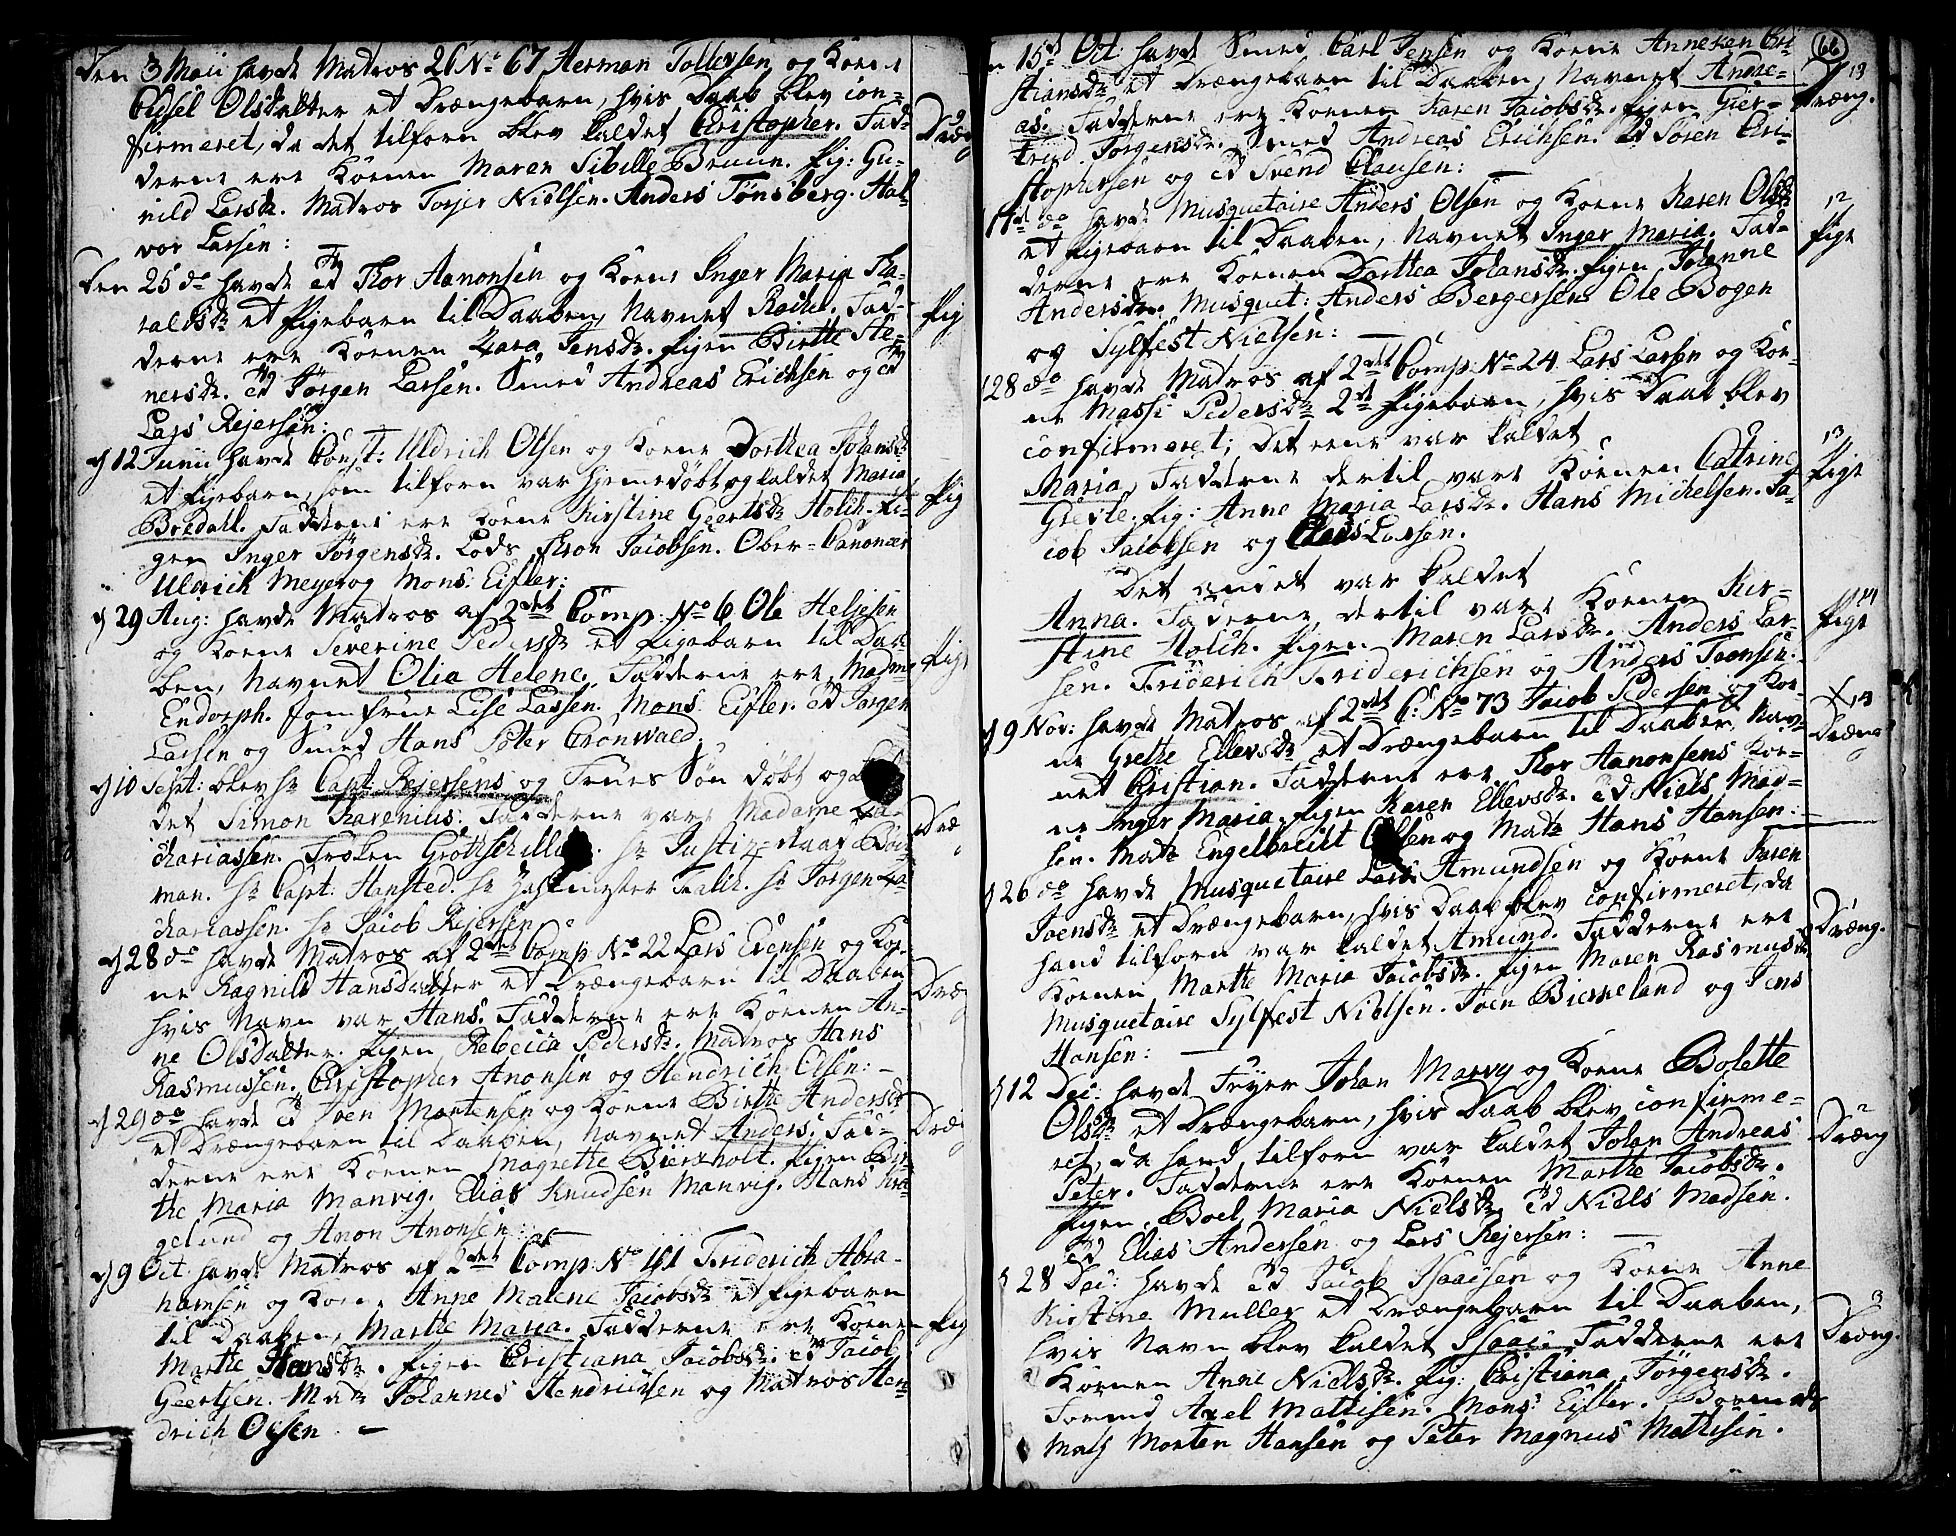 Den 3 Maii havde Matros 26 No 67 Herman Tollefsen og Koene
Edsel Olsdatter et Drængebarn, hvis Daab blev con-
firmeret, da det tilforn blev kaldet Christopher. Fad-
derne ere Koenen Maren Sibille Bruun. Pig: Gu-
nild Larsdr. Matros Torjer Nielsen. Anders Tönsberg. Hal-
vor Larsen:
Dræ
Den 25 do havde Ed Thor Aanonsen og Koene Inger Maria Tha-
raldsdr et Pigebarn til Daaben, Navnet Rachel. Fad-
derne ere Koenen Zara Jensdr. Pigen Birthe Ste-
nersdr. Ed Jörgen Larsen. Smed Andreas Erichsen og Ed
Lars Rejersen:
Pig
d 12 Junii havde Const: Uldrich Olsen og Koene Dorthea Johansdr
et Pigebarn, som tilforn var hjemedöbt og kaldet Maria
Boedall. Fadderne ere Koene Kirstine Geertsdr Holch. Pi-
gen Inger Jörgensdr. Lods Thron Jacobsen. Ober-Canoneer
Uldrich Meyer og Mons: Eifler:
Pig
d 29 Aug: havde Matros af 2det Comp: No 6 Ole Heljesen
og Koene Severine Pedersdr et Pigebarn til Daa-
ben, Navnet Olia Helene. Fadderne ere Madme
Endorph. Jomfrue Lise Lassen. Mons: Eifler. Ed Jörgen
Larsen og Smed Hans Peter Cronwald.
Pige
d 10 Sept: blev Hr Capt: Rejersens og Frues Sön döbt og
det Simon Karenius. Fadderne vare Madame Za-
chariassen. Fröken Grothschilling. Hr Justiz-Raad Böd-
man. Hr Capt: Hansted. Hr Falch. Hr Jörgen Za-
chariassen. Hr Jacob Rejersen
Dræ
d 28 do havde Matros af 2det Comp No 22 Lars Evensen og Koe-
ne Ragnild Hansdatter et Drængebarn til Daaben
hvis Navn var Hans. Fadderne ere Koenen An-
ne Olsdatter. Pigen Rebecca Pedersdr. Matros Hans
Rasmussen. Christopher Anonsen og Hendrich Olsen:
Dræ
d 29 do havde Ed Joen Mortensen og Koene Birthe Andersdr
et Drængebarn til Daaben, Navnet Anders. Fad-
derne ere Koenen Magrethe Bierkholt. Pigen Bir-
the Maria Manvig. Elias Knudsen Manvig. Hans Kra-
gelund og Anon Anonsen:
Dræ
d 9 Oct: havde Matros af 2det Comp: No 141 Friderich Abra-
hamsen og Koene Anne Malene Jacobsdr et Pigebarn
til Daaben, Marthe Maria. Fadderne ere Koenen
Marthe Hansdr. Pigen Christiana Jacobsdr. Ed Jacob
Geertsen. Matr Johannes Hendrichsen og Matros Hen-
drich Olsen.
Pig
66
d 15de Oct: havde Smed Carl Jensen og Koene Anneken Chri-
stiansdr et Drængebarn til Daaben, Navnet Andre-
as. Fadderne ere Koenen Karen Jacobsdr. Pigen Gier-
trud Jörgensdr. Smed Andreas Erichsen. Ed Sören Chri-
stophersen og Ed Svend Clausen:
13
Dræng.
17de do havde Musquetaire Anders Olsen og Koene Karen Olsdr
et Pigebarn til Daaben, Navnet Inger Maria. Fad-
derne ere Koenen Dorthea Johansdr. Pigen Johanne
Andersdr. Musquet: Anders Bergersen. Ole Bogen
og Sylfest Nielsen:
12
Pige
d 28 do havde Matros af 2det Comp: No 24 Lars Larsen og Koe-
ne Massi Pedersdr 2de Pigebarn, hvis Daab blev
confirmeret; Det eene var kaldet
Maria, Fadderne dertil vare Koenen Catrine
Greve. Pig: Anne Maria Larsdr. Hans Michelsen. Ja-
cob Jacobsen og Claus Larsen.
13
Pige
Det andet var kaldet
Anna. Fadderne dertil vare Koenen Kir-
stine Holch. Pigen Maren Larsdr. Anders Lar-
sen. Friderich Friderichsen og Anders Toensen.
14
Pige
d 9 Nov: havde Matros af 2det C: No 73 Jacob Pedersen og Koe-
ne Grethe Ellevsdr et Drængebarn til Daaben, Nav-
net Christian. Fadderne ere Thor Aanonsens Koe-
ne Inger Maria. Pigen Karen Ellevsdr. Ed Niels Mad-
sen. Matr Engelbreckt Olsen og Matr Hans Hansen:
Dræng
d 26 do havde Musquetaire Lars Amundsen og Koene Karen
Joensdr et Drængebarn, hvis Daab blev confirmeret, da
hand tilforn var kaldet Amund. Fadderne ere
Koenen Marthe Maria Jacobsdr. Pigen Maren Rasmusdr
Musquetaire Sylfest Nielsen. Joen Bierkeland og Jens
Hansen:
Dræng.
d 12 Dec: havde Fryer Johan Marvy og Koene Bolette
Olsdr et Drængebarn, hvis Daab blev confirme-
ret, da hand tilforn var kaldet Johan Andreas
Peter. Fadderne ere Koenen Marthe Jacobsdr.
Pigen Boel Maria Nielsdr. Ed Niels Madsen.
Ed Elias Andersen og Lars Rejersen:
2
Dræng
d 28 Dec: havde Ed Jacob Isaacsen og Koene Anne
Kirstine Muller et Drængebarn til Daaben,
hvis Navn blev kaldet Isaac. Fadderne ere
Koenen Anne Nielsdr. Pig: Christiana Jörgensdr.
Formd Axel Mathisen. Mons: Eifler.
Mats Morten Hansen og Peter Magnus Mathisen.
3
Dræng.